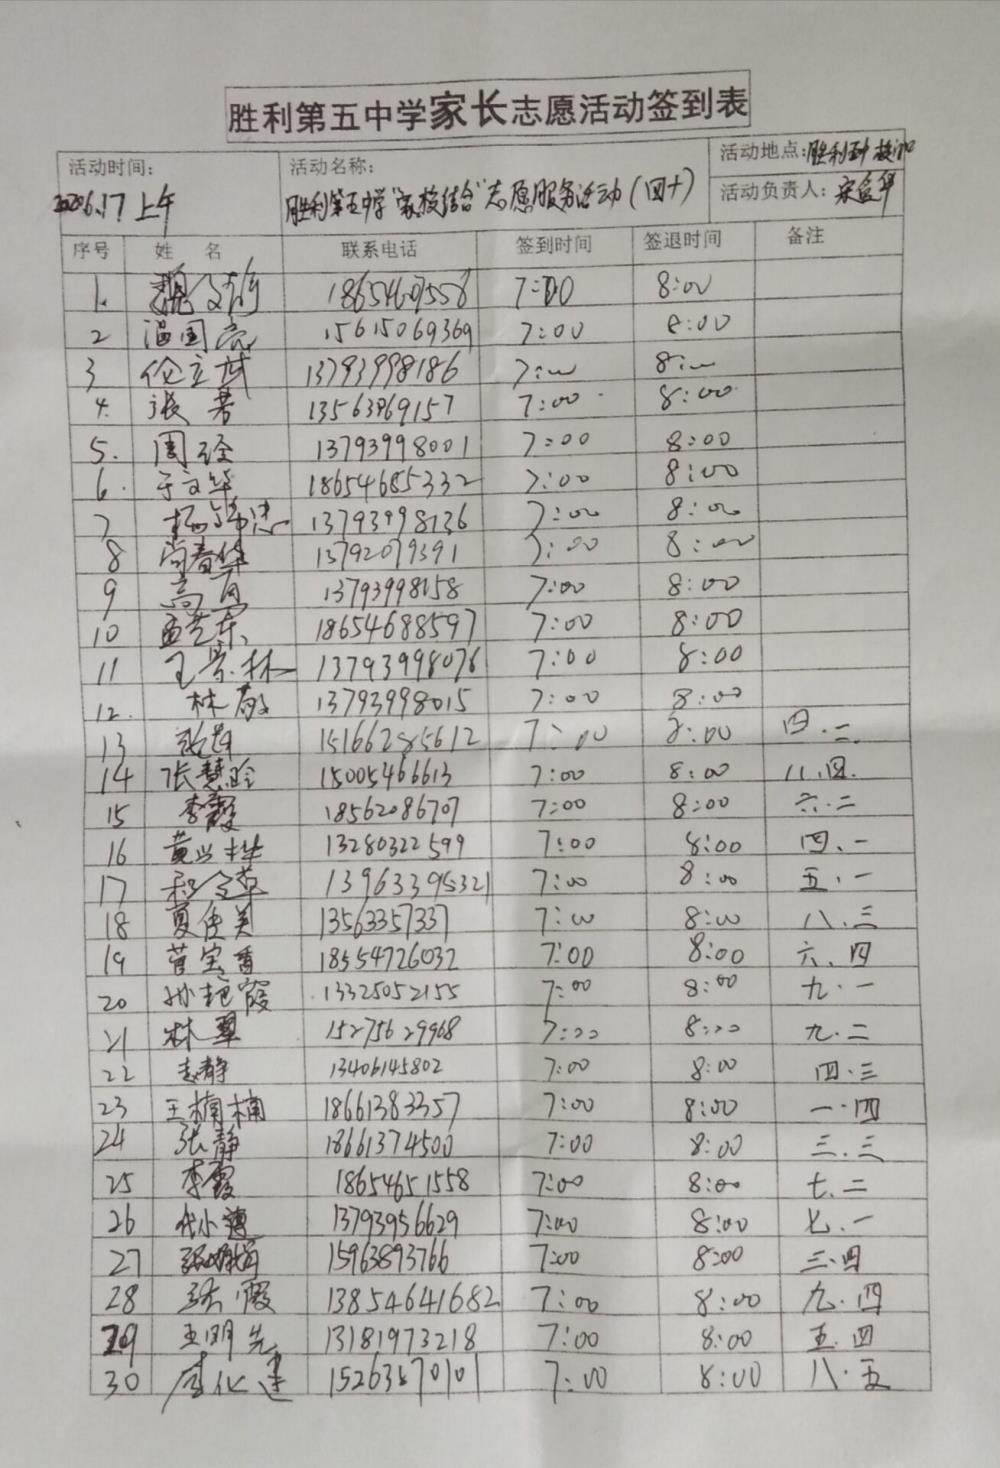 胜利第五中学家长志愿活动签到表
活动时间： 活动名称： 活动地点：胜利五中 校门口
2020.6.17上午 胜利第五中学"家校结合"志愿服务活动（四十） 活动负责人：宋益华
序号 姓 名 联系电话 签到时间 签退时间 备注
1. 18654607558 7:00 8:00
2 温国亮 15615069369 7:00 8:00
3 伦立武 13793998186 7:00 8:00
4. 张芳 13563869157 7:00 8:00
5. 周玲 13793998001 7:00 8:00
6. 于文华 18654685332 7:00 8:00
7 杨华忠 13793998136 7:00 8:00
8 尚春华 13792079391 7:00 8:00
9 高月 13793998158 7:00 8:00
10 孟芝军 18654688597 7:00 8:00
11 王景林 13793998076 7:00 8:00
12. 林敬 13793998015 7:00 8:00
13 15166285612 7:00 8:00 四.二
14 张慧玲 15005466613 7:00 8:00 八.四.
15 李霞 18562086707 7:00 8:00 六.二
16 黄兴桂 13280322599 7:00 8:00 四.一
17 13963395321 7:00 8:00 五.一
18 夏俊美 13563357337 7:00 8:00 八.三
19 菅宝香 18554726032 7:00 8:00 六.四
20 孙艳霞 13325052155 7:00 8:00 九.一
21 林翠 15275629968 7:00 8:00 九.二
22 志静 13406145802 7:00 8:00 四.三
23 王楠楠 18661383357 7:00 8:00 一.四
24 张静 18661374500 7:00 8:00 三.三
25 李霞 18654651558 7:00 8:00 七.二
26 代小 13793956629 7:00 8:00 七.一
27 15963893766 7:00 8:00 三.四
28 张霞 13854641682 7:00 8:00 九.四
29 王明先 13181973218 7:00 8:00 五.四
30 唐化建 15263870101 7:00 8:00 八.五